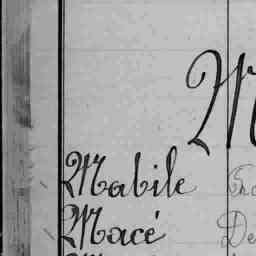 M
Mabile
Macé De